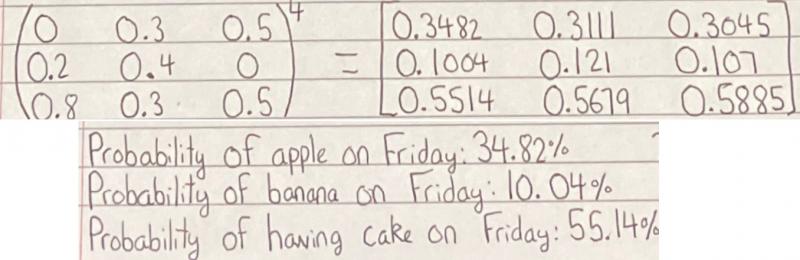 (0 0.3 0.5)⁴ = [0.3482 0.3111 0.3045]
0.2 0.4 0 0.1004 0.121 0.107
0.8 0.3 0.5 0.5514 0.5679 0.5885
Probability of apple on Friday: 34.82%
Probability of banana on Friday: 10.04%
Probability of having cake on Friday: 55.14%